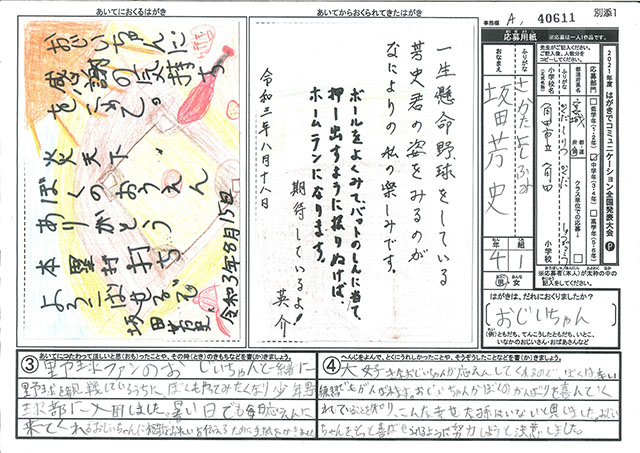 別添1
事務欄 A, 40611
応募用紙
※応募は一人1作品です。
2021年度 はがきでコミュニケーション全国発表大会 P
先生がご記入ください。
ご記入後、人数分を
コピーしてください。
応募部門
低学年(1・2年)
中学年(3・4年)
高学年(5・6年)
クラス単位での応募
ふりがな
小学校名
(正式名称)
都道府県名
宮城
都 道
府 県
角田市立 角田
小学校
ふりがな
おなまえ
さかた よしふみ
坂田芳史
年 組
4 1
男 女
※応募者(本人)が太枠の中の
記入をしてください。
はがきは、だれにおくりましたか?
(おじいちゃん)
(例)ともだち、てんこうしたともだち、いとこ、
いなかのおじいさん・おばあさんなど
あいてからおくられてきたはがき
一生懸命野球をしている
芳史君の姿をみるのが
なによりの私の楽しみです。
ボールをよくみて、バットのしんに当て
押し出すように振りぬけば、
ホームランになります。
期待しているよ! 英介
令和三年八月十八日
あいてにおくるはがき
おじいちゃんに
感謝の気持ち
をこめて。
炎天下
ぼくのおうえん
ありがとう
本塁打 打ち
よろこばせるぞ
坂田芳史
令和3年8月15日
③ あいてにつたわってほしいと思(おも)ったことや、その時(とき)のきもちなどを書(か)きましょう。
野球ファンのおじいちゃんと一緒に
野球を観戦しているうちに、ぼくもやってみたくなり少年野
球部に入団しました。暑い日でも毎日応えんに
来てくれるおじいちゃんに
④ へんじをよんで、とくにうれしかったことや、そうぞうしたことなどを書(か)きましょう。
大好きなおじいちゃんが応えんしてくれるので、ぼくは辛い
練習もがんばれます。おじいちゃんがぼくのがんばりを喜んでく
れていることを知り、こんな幸せな孫はいないと思いました。おじい
ちゃんをもっと喜ばせられるように努力しようと決意しました。